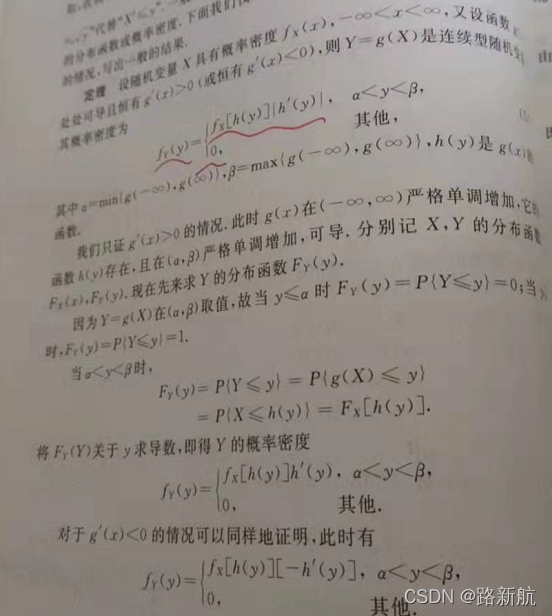 "代替"X
的分布函数或概率密度.下面我们
的情况,写出一般的结果.
定理 设随机变量 X 具有概率密度 f_X(x), -∞<x<∞, 又设函数
处处可导且恒有 g'(x)>0(或恒有 g'(x)<0),则 Y=g(X)是连续型随机
其概率密度为
f_Y(y)={f_X[h(y)]|h'(y)|, α<y<β,
0, 其他,
其中 α=min{g(-∞),g(∞)},β=max{g(-∞),g(∞)},h(y)是 g(x)
函数.
我们只证 g'(x)>0的情况.此时 g(x)在(-∞,∞)严格单调增加,它的
函数 h(y)存在,且在(α,β)严格单调增加,可导.分别记 X,Y 的分布函数
F_X(x),F_Y(y).现在先来求 Y 的分布函数 F_Y(y).
因为 Y=g(X)在(α,β)取值,故当 y≤α 时 F_Y(y)=P{Y≤y}=0;当
时,F_Y(y)=P{Y≤y}=1.
当 α<y<β时,
F_Y(y)=P{Y≤y}=P{g(X)≤y}
=P{X≤h(y)}=F_X[h(y)].
将 F_Y(Y)关于 y 求导数,即得 Y 的概率密度
f_Y(y)={f_X[h(y)]h'(y), α<y<β,
0, 其他.
对于 g'(x)<0 的情况可以同样地证明,此时有
f_Y(y)={f_X[h(y)][-h'(y)], α<y<β,
0, 其他.
CSDN @路新航